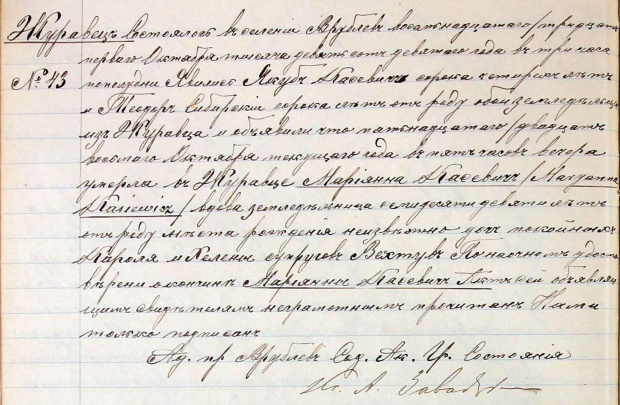 Журавецъ Состоялось въ селеніи Врублевъ восемнадцатаго / тридцать
перваго Октября тысяча девятьсотъ девятаго года въ три часа
№ 43 пополудни Явились Якубъ Стасевичъ сорока четырехъ лѣтъ
и Теодоръ Сибирскій сорока лѣтъ отъ роду оба земледѣльцы
изъ Журавца и объявили что пятнадцатаго / двадцать
восьмаго Октября текущаго года въ пять часовъ вечера
умерла въ Журавце Маріянна Стасевичъ / Maryanna
Stasiewicz / вдова земледѣльница семидесяти девяти лѣтъ
отъ роду мѣста рожденія неизвѣстно дочь покойныхъ
Кароля и Хелены супруговъ По наочномъ удосто
вѣреніи о кончинѣ Маріянны Стасевичъ Актъ сей объявляю
щимъ свидѣтелямъ неграмотнымъ прочитанъ Нами
только подписанъ
Ад. пр Врублевъ Сод. Ак. Гр. Состоянія
Кс. А.